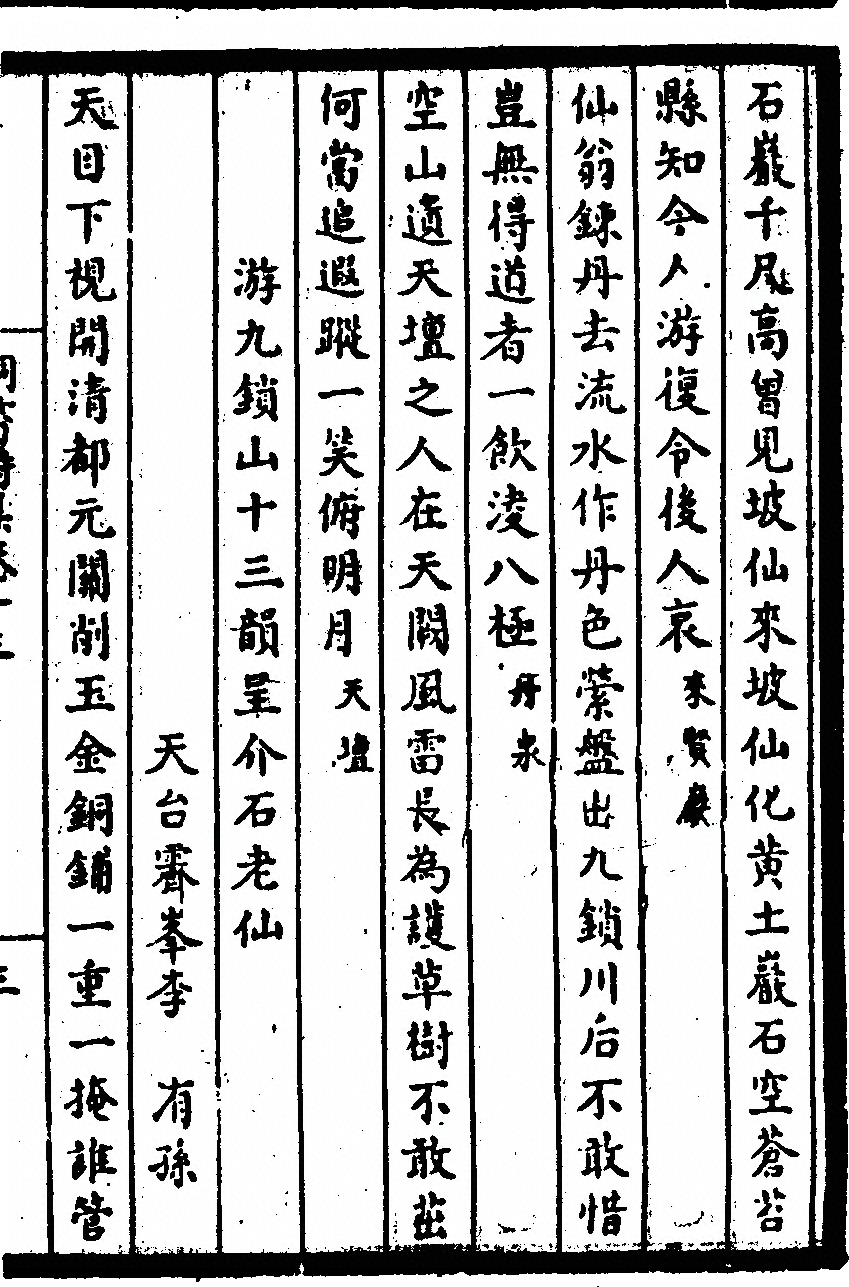 石巖千尺高曾見坡仙來坡仙化黄土巖石空蒼苔
縣知今人游復令後人哀来賢巖
仙翁鍊丹去流水作丹色縈盤出九鎖川后不敢惜
豈無得道者一飲淩八極丹泉
空山遺天壇之人在天闕風雷長為護草樹不敢茁
何當追遐蹤一笑俯明月天壇
游九鎖山十三韻呈介石老仙
天台霽峯李 有孫
天目下視開清都元關削玉金銅鋪一重一掩誰管
洞霄詩集卷十三
三